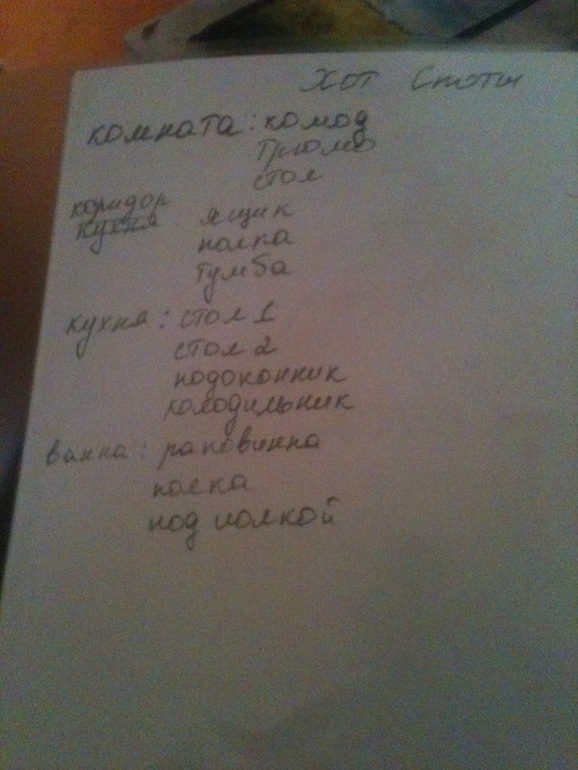 Хот Споты
комната: комод
трюмо
стол
коридор
кухня ящик
полка
тумба
кухня: стол 1
стол 2
подоконник
холодильник
ванна: раковинна
полка
под полкой